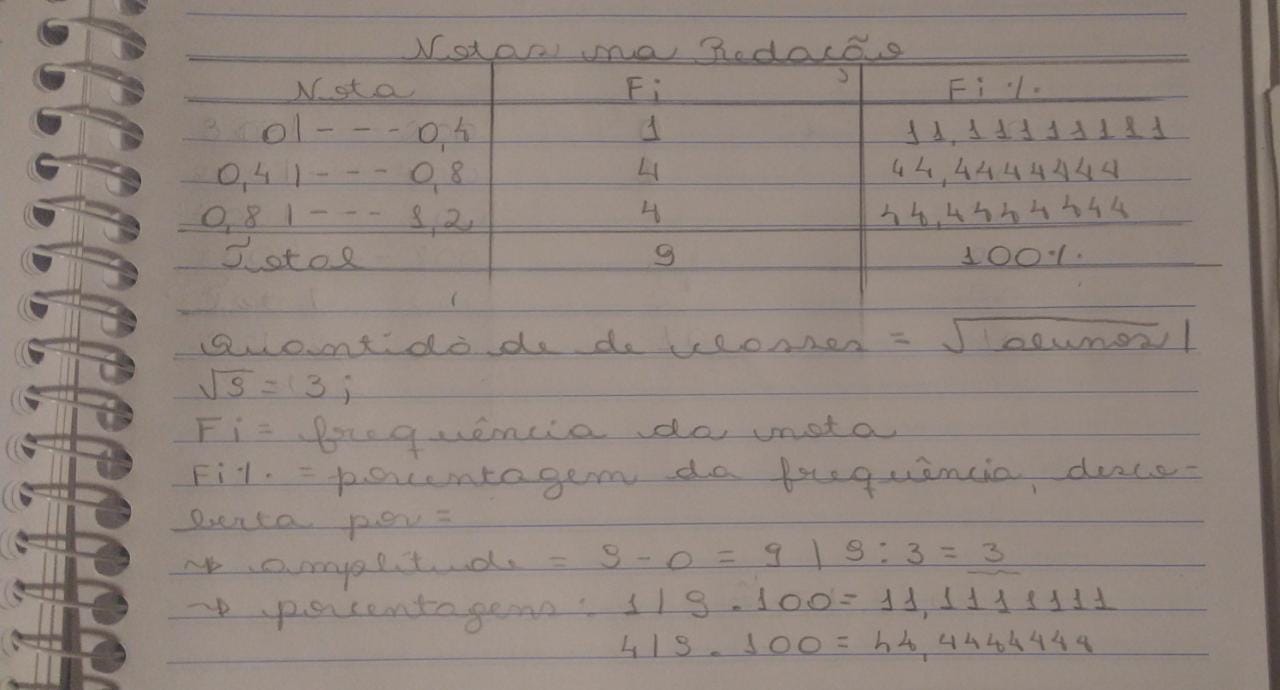 Notas na Redação
Nota Fi Fi %
0 |--- 0,4 1 11,11111111
0,4 |--- 0,8 4 44,4444444
0,8 |--- 1,2 4 44,4444444
Total 9 100%
Quantidade de classes = √alunos |
√9 = 3;
Fi = frequência da nota
Fi% = porcentagem da frequência, desco-
berta por =
→ amplitude = 9 - 0 = 9 | 9 : 3 = 3
→ porcentagens: 1 | 9 . 100 = 11,1111111
4 | 9 . 100 = 44,4444444